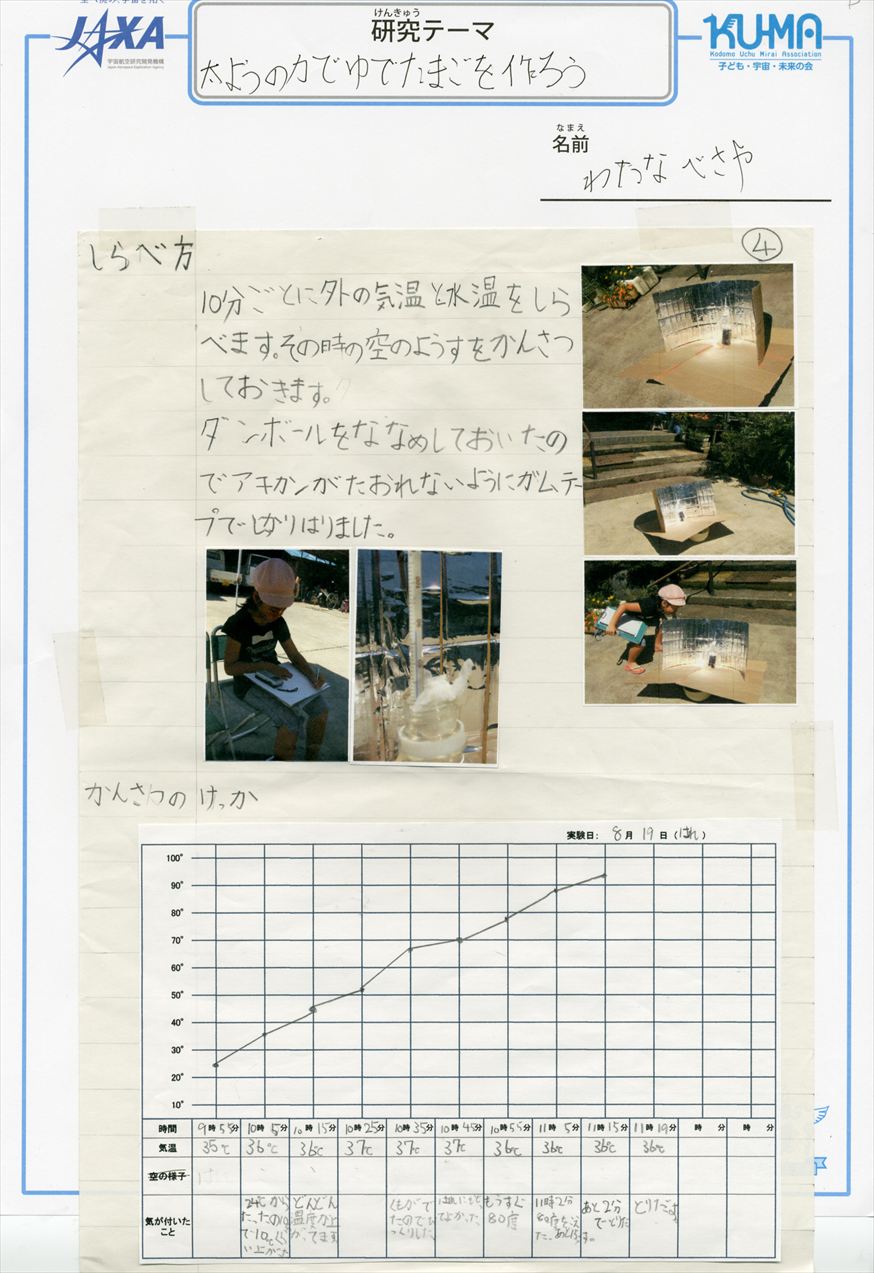 JAXA
宇宙航空研究開発機構
Japan Aerospace Exploration Agency
けんきゅう
研究テーマ
太ようの力でゆでたまごを作ろう
KU-MA
Kodomo Uchu Mirai Association
子ども・宇宙・未来の会
なまえ
名前
わたなべさや
しらべ方
④
10分ごとに外の気温と水温をしら
べます。その時の空のようすをかんさつ
しておきます。
ダンボールをななめしておいたの
でアキカンがたおれないようにガムテー
プでしっかりはりました。
かんさつのけっか
実験日: 8月 19日 (はれ)
100°
90°
80°
70°
60°
50°
40°
30°
20°
10°
時間 9時55分 10時5分 10時15分 10時25分 10時35分 10時45分 10時55分 11時5分 11時15分 11時19分 時 分 時 分
気温 35℃ 36℃ 36℃ 37℃ 37℃ 37℃ 36℃ 36℃ 36℃ 36℃
空の様子
気が付いた
こと
どんどん
温度が上
がってます
くもがで
たのでび
っくりした
もうすぐ
80度
11時2分
あと2分